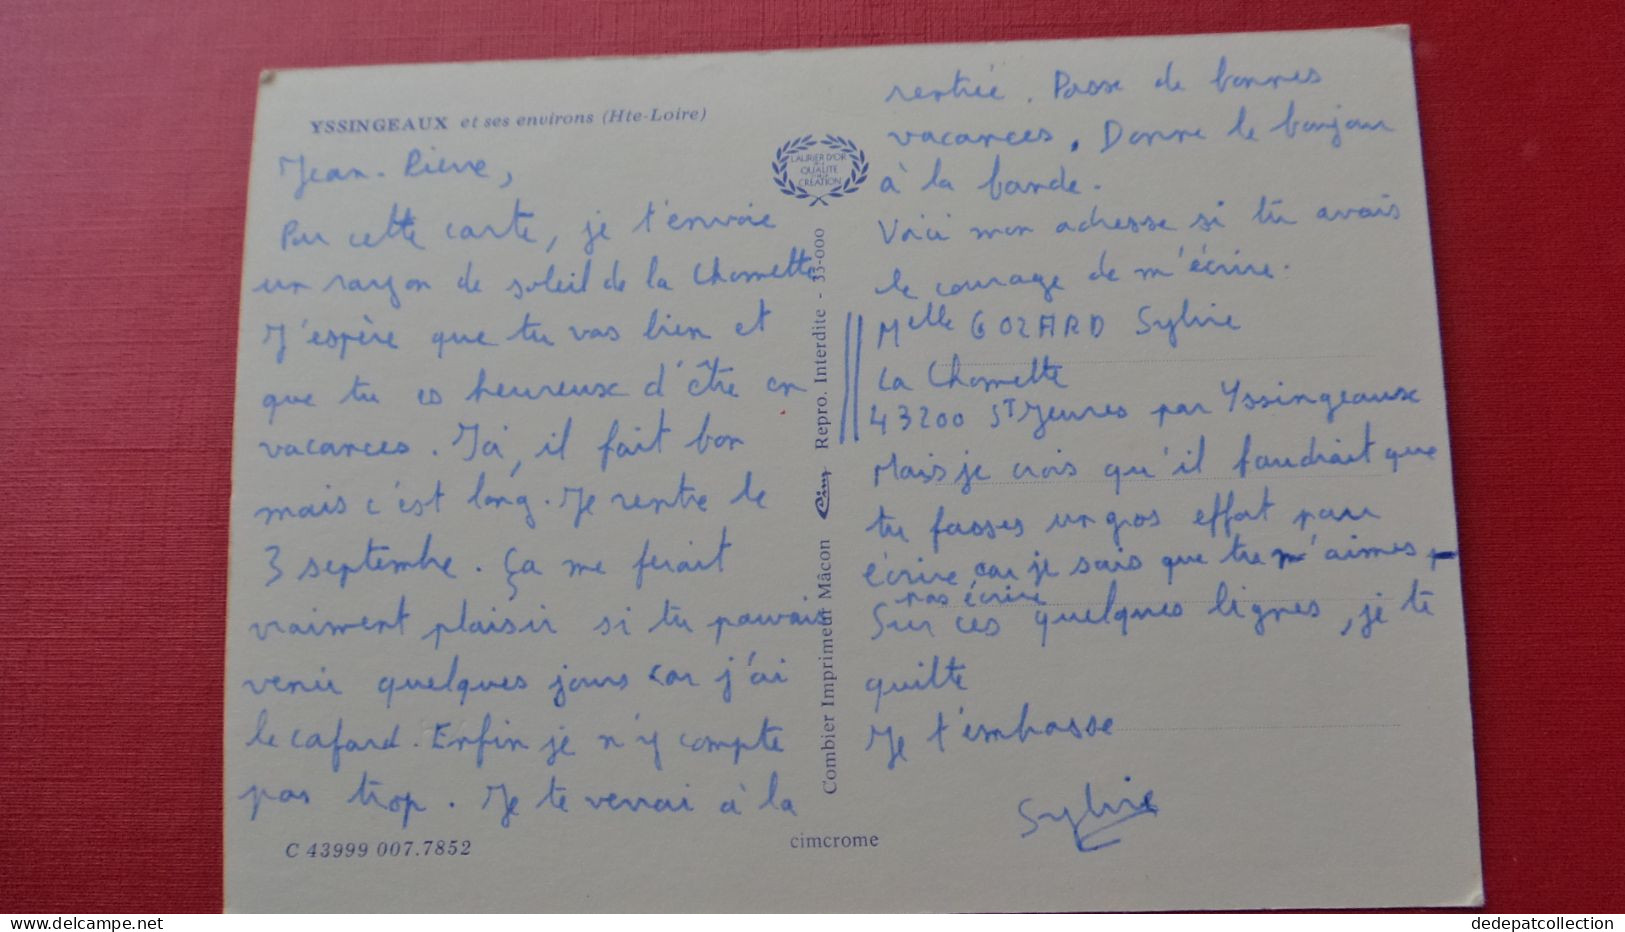 YSSINGEAUX et ses environs (Hte-Loire)
Jean-Pierre,
Par cette carte, je t'envoie
un rayon de soleil de la Chomette
J'espère que tu vas bien et
que tu es heureux d'être en
vacances. Ici, il fait bon
mais c'est long. Je rentre le
3 septembre. Ça me ferait
vraiment plaisir si tu pouvais
venir quelques jours car j'ai
le cafard. Enfin je n'y compte
pas trop. Je te verrai à la
C 43999 007.7852
LAURIER D'OR
DE LA
QUALITÉ
CRÉATION
Combier Imprimeur Mâcon Cim Repro. Interdite - 33-000
cimcrome
rentrée. Passe de bonnes
vacances. Donne le bonjour
à la bande.
Voici mon adresse si tu avais
le courage de m'écrire.
Melle GOZARD Sylvie
La Chomette
43200 St Jeures par Yssingeaux
Mais je crois qu'il faudrait que
tu fasses un gros effort pour
écrire car je sais que tu n'aimes
pas écrire
Sur ces quelques lignes, je te
quitte
Je t'embrasse
Sylvie
dedepatcollection